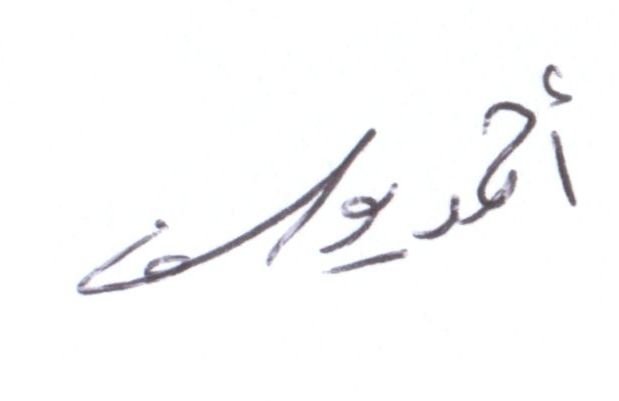 أحمد يوسف